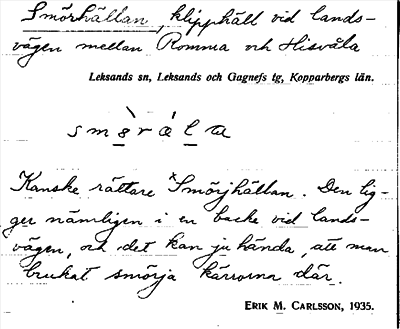 Smörhällan, klipphäll vid lands-
vägen mellan Romma och Hisvåla
Leksands sn, Leksands och Gagnefs tg, Kopparbergs län.
Kanske rättare *Smörjhällan. Den lig-
ger nämligen i en backe vid lands-
vägen, och det kan ju hända, att man
brukat smörja kärrorna där.
ERIK M. CARLSSON, 1935.